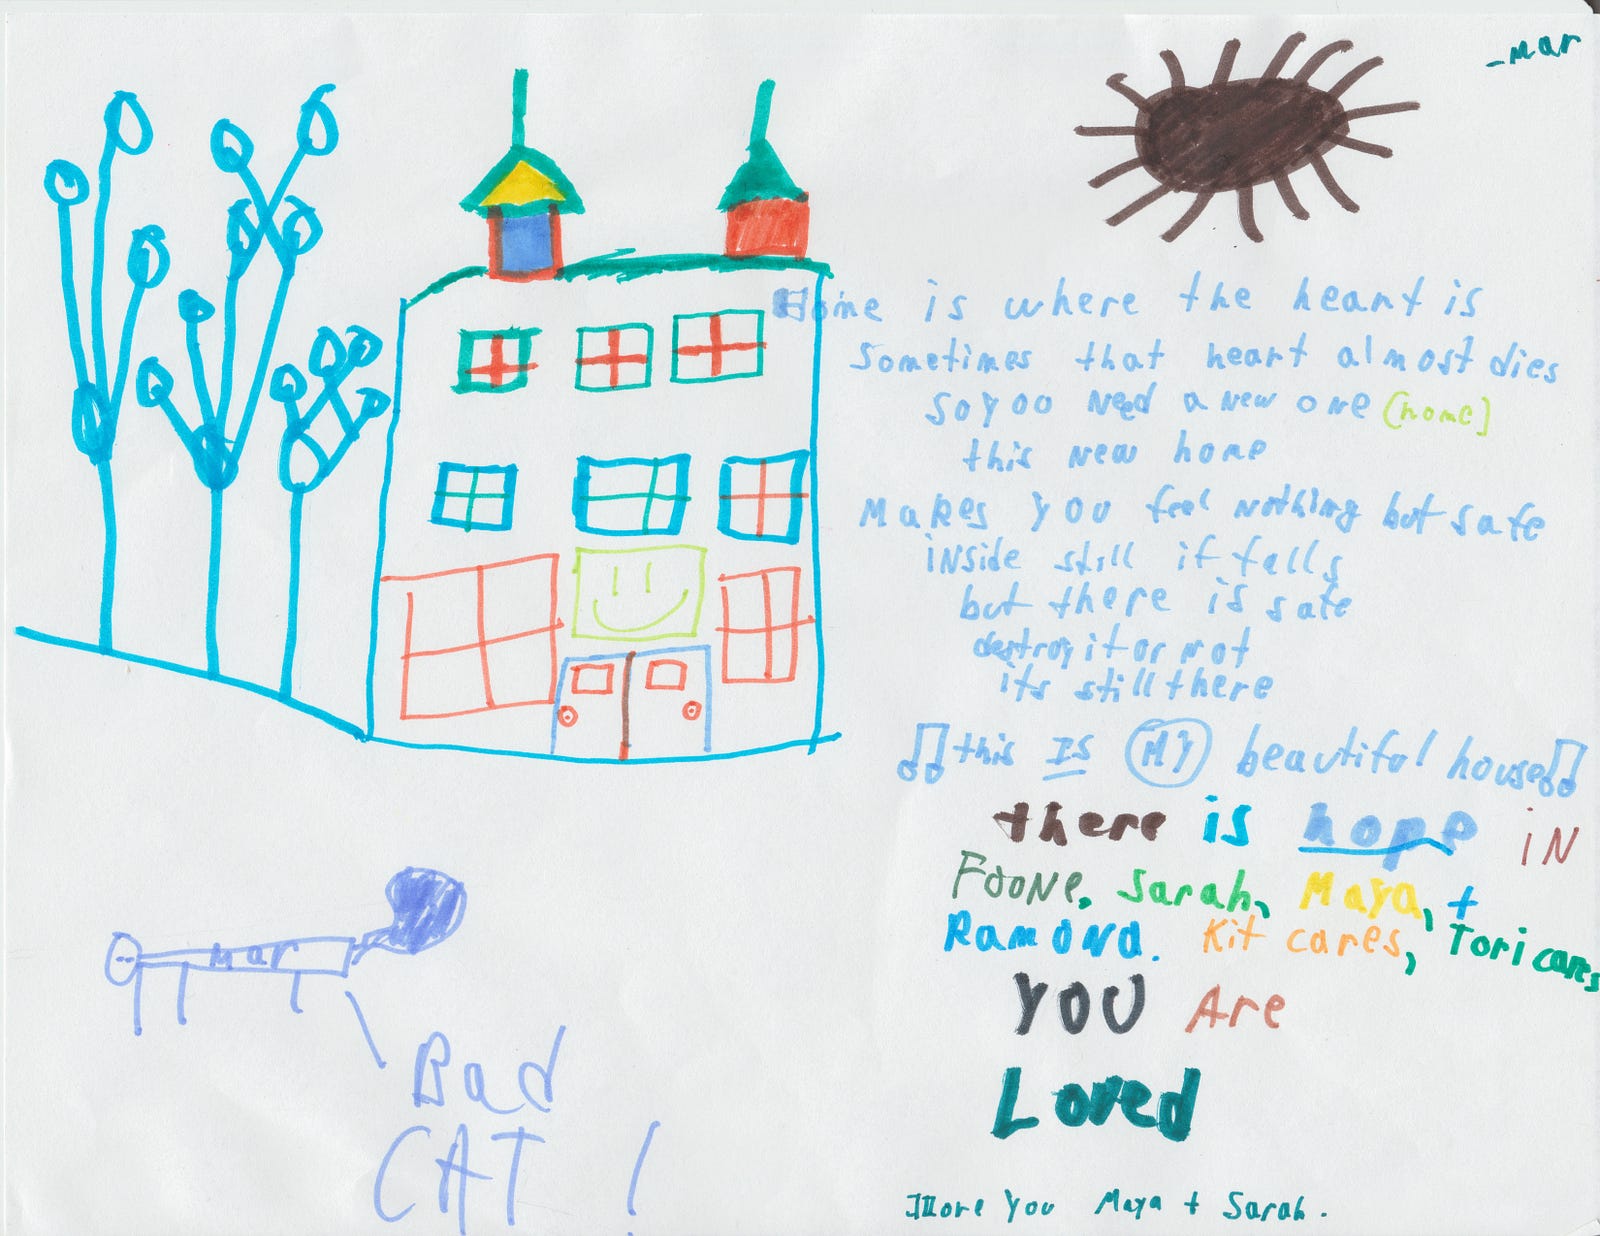 -mar
Home is where the heart is
Sometimes that heart almost dies
So yoo Need a new one (home)
this new home
Makes you feel nothing but safe
inside still it falls
but there is safe
destroy it or not
its still there
♫ this IS MY beautiful house ♫
there is hope iN
FdoNe, Sarah, Maya, +
Ramond. Kit cares, Tori cares
YOU Are
Loved
I love you Maya + Sarah.
mar
Bad
CAT !